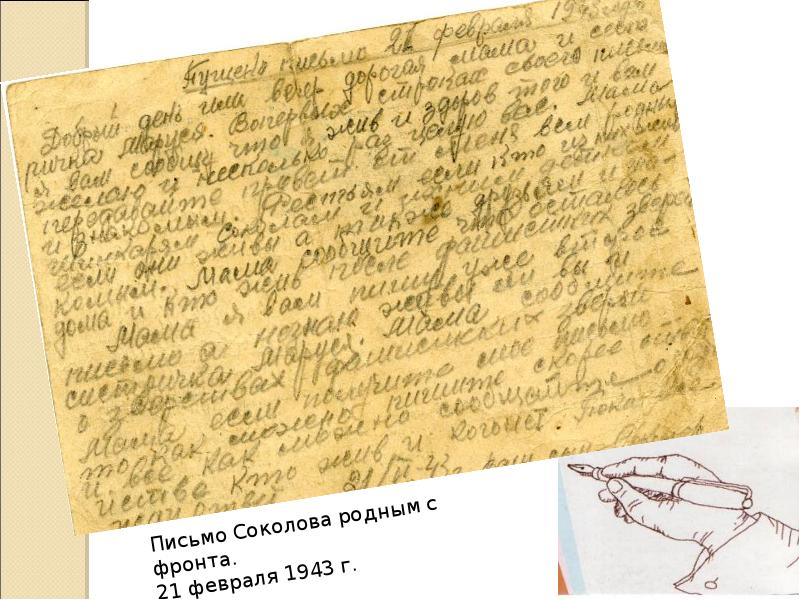 Пущено письмо 21 февраля 1943 года
Добрый день или вечер дорогая мама и сест-
ричка Маруся. Вопервых строках своего письма
я вам сообщу что я жив и здоров того и вам
желаю и несколько раз целую вас. Мама
передавайте привет от меня всем родным
и знакомым.
если они живы а также друзьям и зна-
комым. Мама сообщите что осталось
дома и кто жив после фашисских зверей
Мама я вам пишу уже второе
письмо а незнаю живы ли вы и
систричка Маруся. Мама сообщите
о зверствах фашисских зверей
Мама если получите мое письмо
то как можно пишите скорее ответ
и все как можно сообщайте о
кто жив и кого нет Пока все
21/II-43г. ваш сын
Письмо Соколова родным с
фронта.
21 февраля 1943 г.